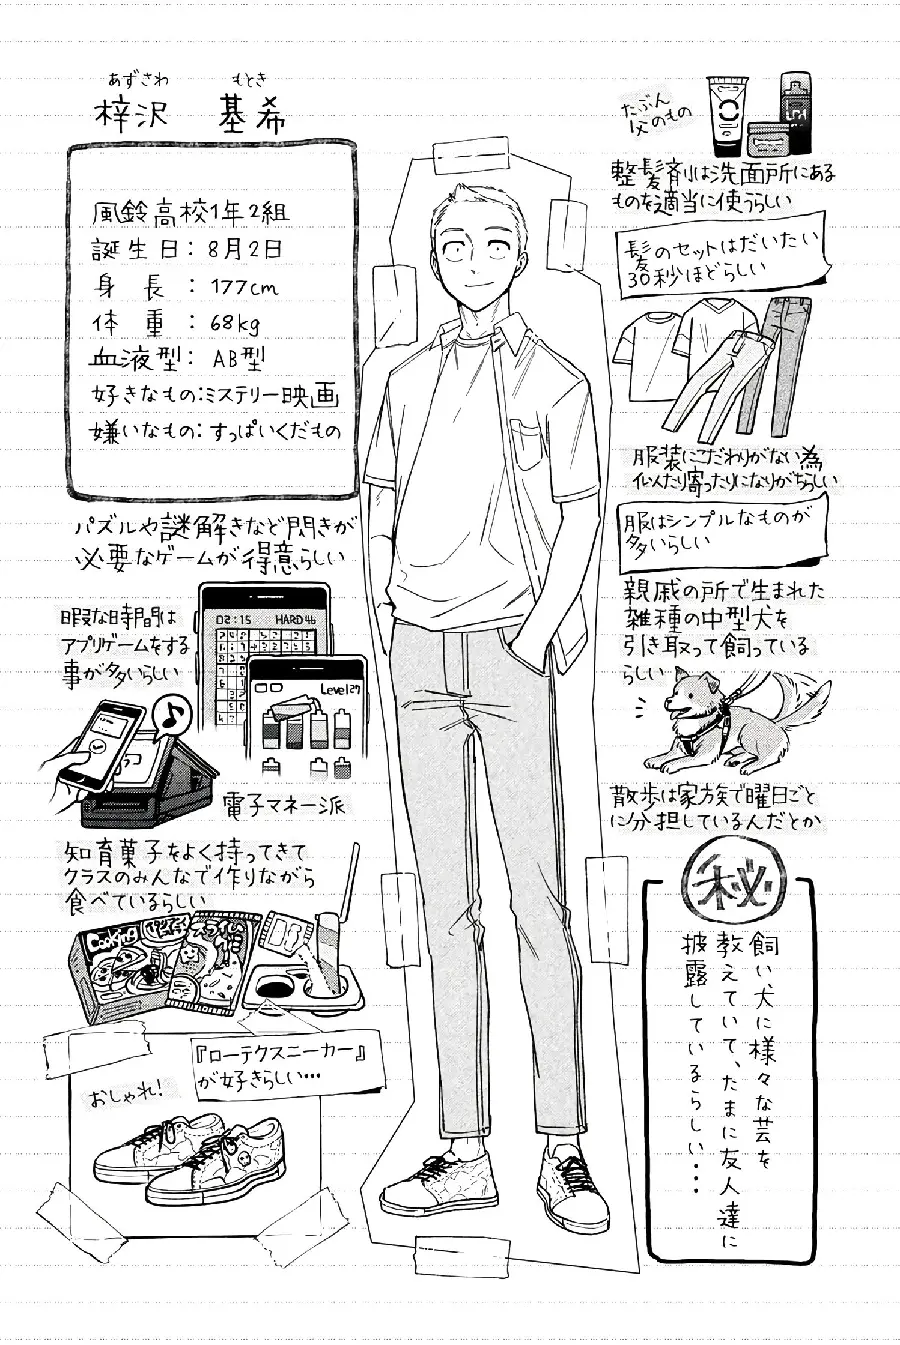 あずさわ もとき
梓沢 基希
風鈴高校1年2組
誕生日：8月2日
身長：177cm
体重：68kg
血液型：AB型
好きなもの：ミステリー映画
嫌いなもの：すっぱいくだもの
パズルや謎解きなど閃きが
必要なゲームが得意らしい
暇な時間は
アプリゲームをする
事が多いらしい
02:15 HARD46
Level29
電子マネー派
知育菓子をよく持ってきて
クラスのみんなで作りながら
食べているらしい
Cooking
『ローテクスニーカー』
が好きらしい…
おしゃれ！
たぶん
父のもの
整髪剤は洗面所にある
ものを適当に使うらしい
髪のセットはだいたい
30秒ほどらしい
服装にこだわりがない為
似たり寄ったりになりがちらしい
服はシンプルなものが
多いらしい
親戚の所で生まれた
雑種の中型犬を
引き取って飼っている
らしい
散歩は家族で曜日ごと
に分担しているんだとか
秘
飼い犬に様々な芸を
教えていて、たまに友人達に
披露しているらしい…